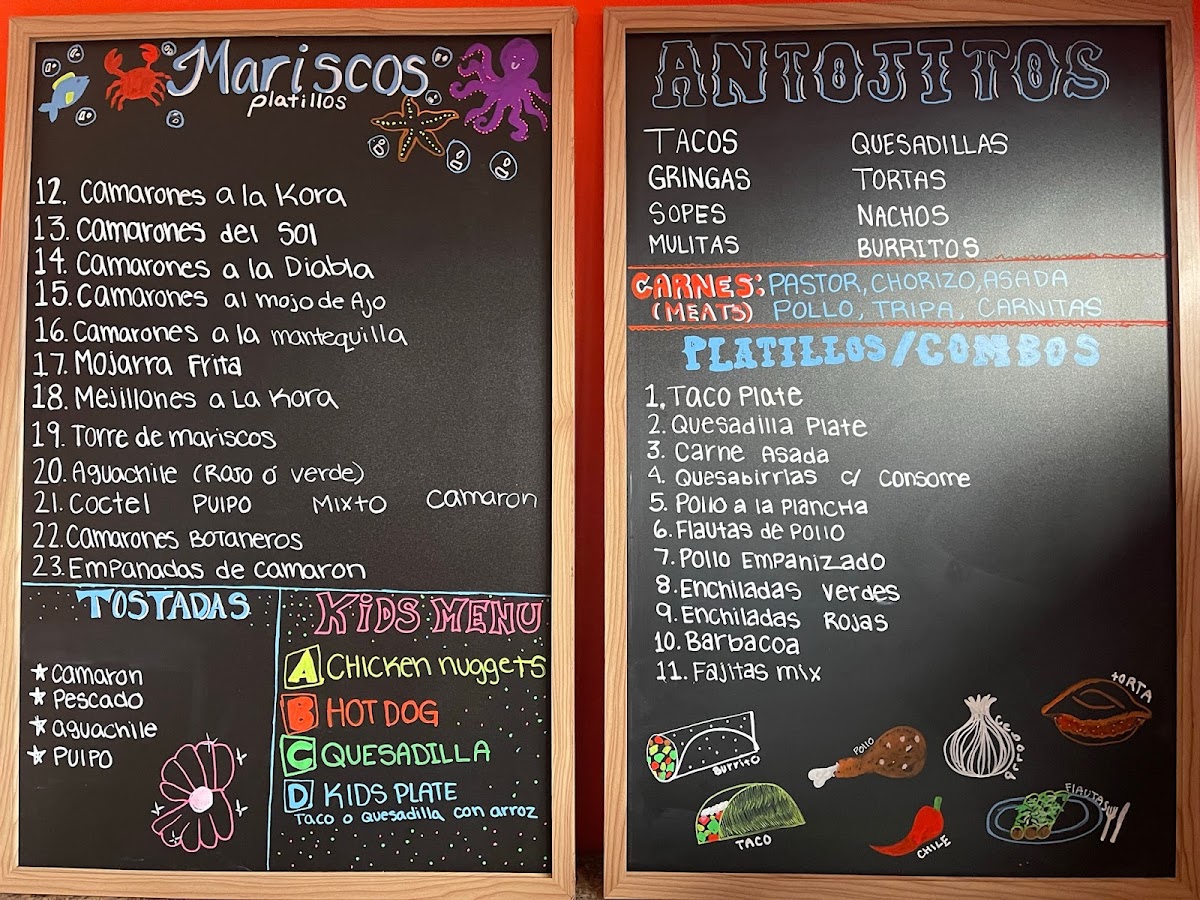 Mariscos
platillos
12. Camarones a la Kora
13. Camarones del Sol
14. Camarones a la Diabla
15. Camarones al mojo de Ajo
16. Camarones a la mantequilla
17. Mojarra Frita
18. Mejillones a La Kora
19. Torre de mariscos
20. Aguachile (Rojo ó verde)
21. Coctel PUlPO MixTO Camaron
22. Camarones BoTaneros
23. Empanadas de camaron
TOSTADAS
Camaron
Pescado
aguachile
PUlPO
KiDS MENU
A CHICKEN nuggets
B HOT DOG
C QUESADILLA
D KIDS PLATE
Taco o Quesadilla con arroz
ANTOJITOS
TACOS QUESADILLAS
GRINGAS TORTAS
SOPES NACHOS
MULITAS BURRITOS
CARNES: PASTOR, CHORIZO, ASADA
(MEATS) POLLO, TRIPA, CARNITAS
PLATILLOS/COMBOS
1. Taco Plate
2. Quesadilla Plate
3. Carne Asada
4. Quesabirrias c/ Consome
5. Pollo a la Plancha
6. Flautas de Pollo
7. Pollo Empanizado
8. Enchiladas Verdes
9. Enchiladas Rojas
10. Barbacoa
11. Fajitas mix
Burrito
Pollo
TORTA
TACO
CHILE
Flautas